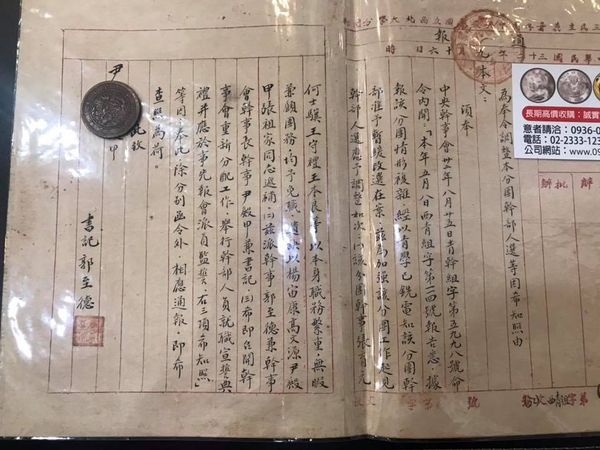 通報
為奉令調整本分團幹部人選等因希知照由
頃奉
中央幹事會卅一年八月廿五日青幹組字第五九九八號命
令內開「本年五月日西青組字第一四號報告悉，據
報該分團情形複雜，經以青學巳銑電知該分團幹
部准予暫緩改選在案，茲為加強該分團工作起見
幹部人選應予調整如次：㈠該分團幹事張育元
何士驥王守禮王本良等以本身職務繁重，無暇
兼顧團務，均予免職，遺缺以楊宙康高文源尹殿
甲張祖家同志遞補；㈡茲派幹事郭至德兼幹事
會幹事長，幹事尹殿甲兼書記㈢希即召開幹
事會重新分配工作，舉行幹部人員就職宣誓典
禮并應於事先報會派員監誓。右三項希知照」
等因；奉此，除分別函令外，相應通報，即希
查照為荷。
此致
尹
甲
書記 郭至德
長期高價收購：誠實
意者請洽：0936-0
電話：02-2333-123
公司網站：www.09
批辦
號